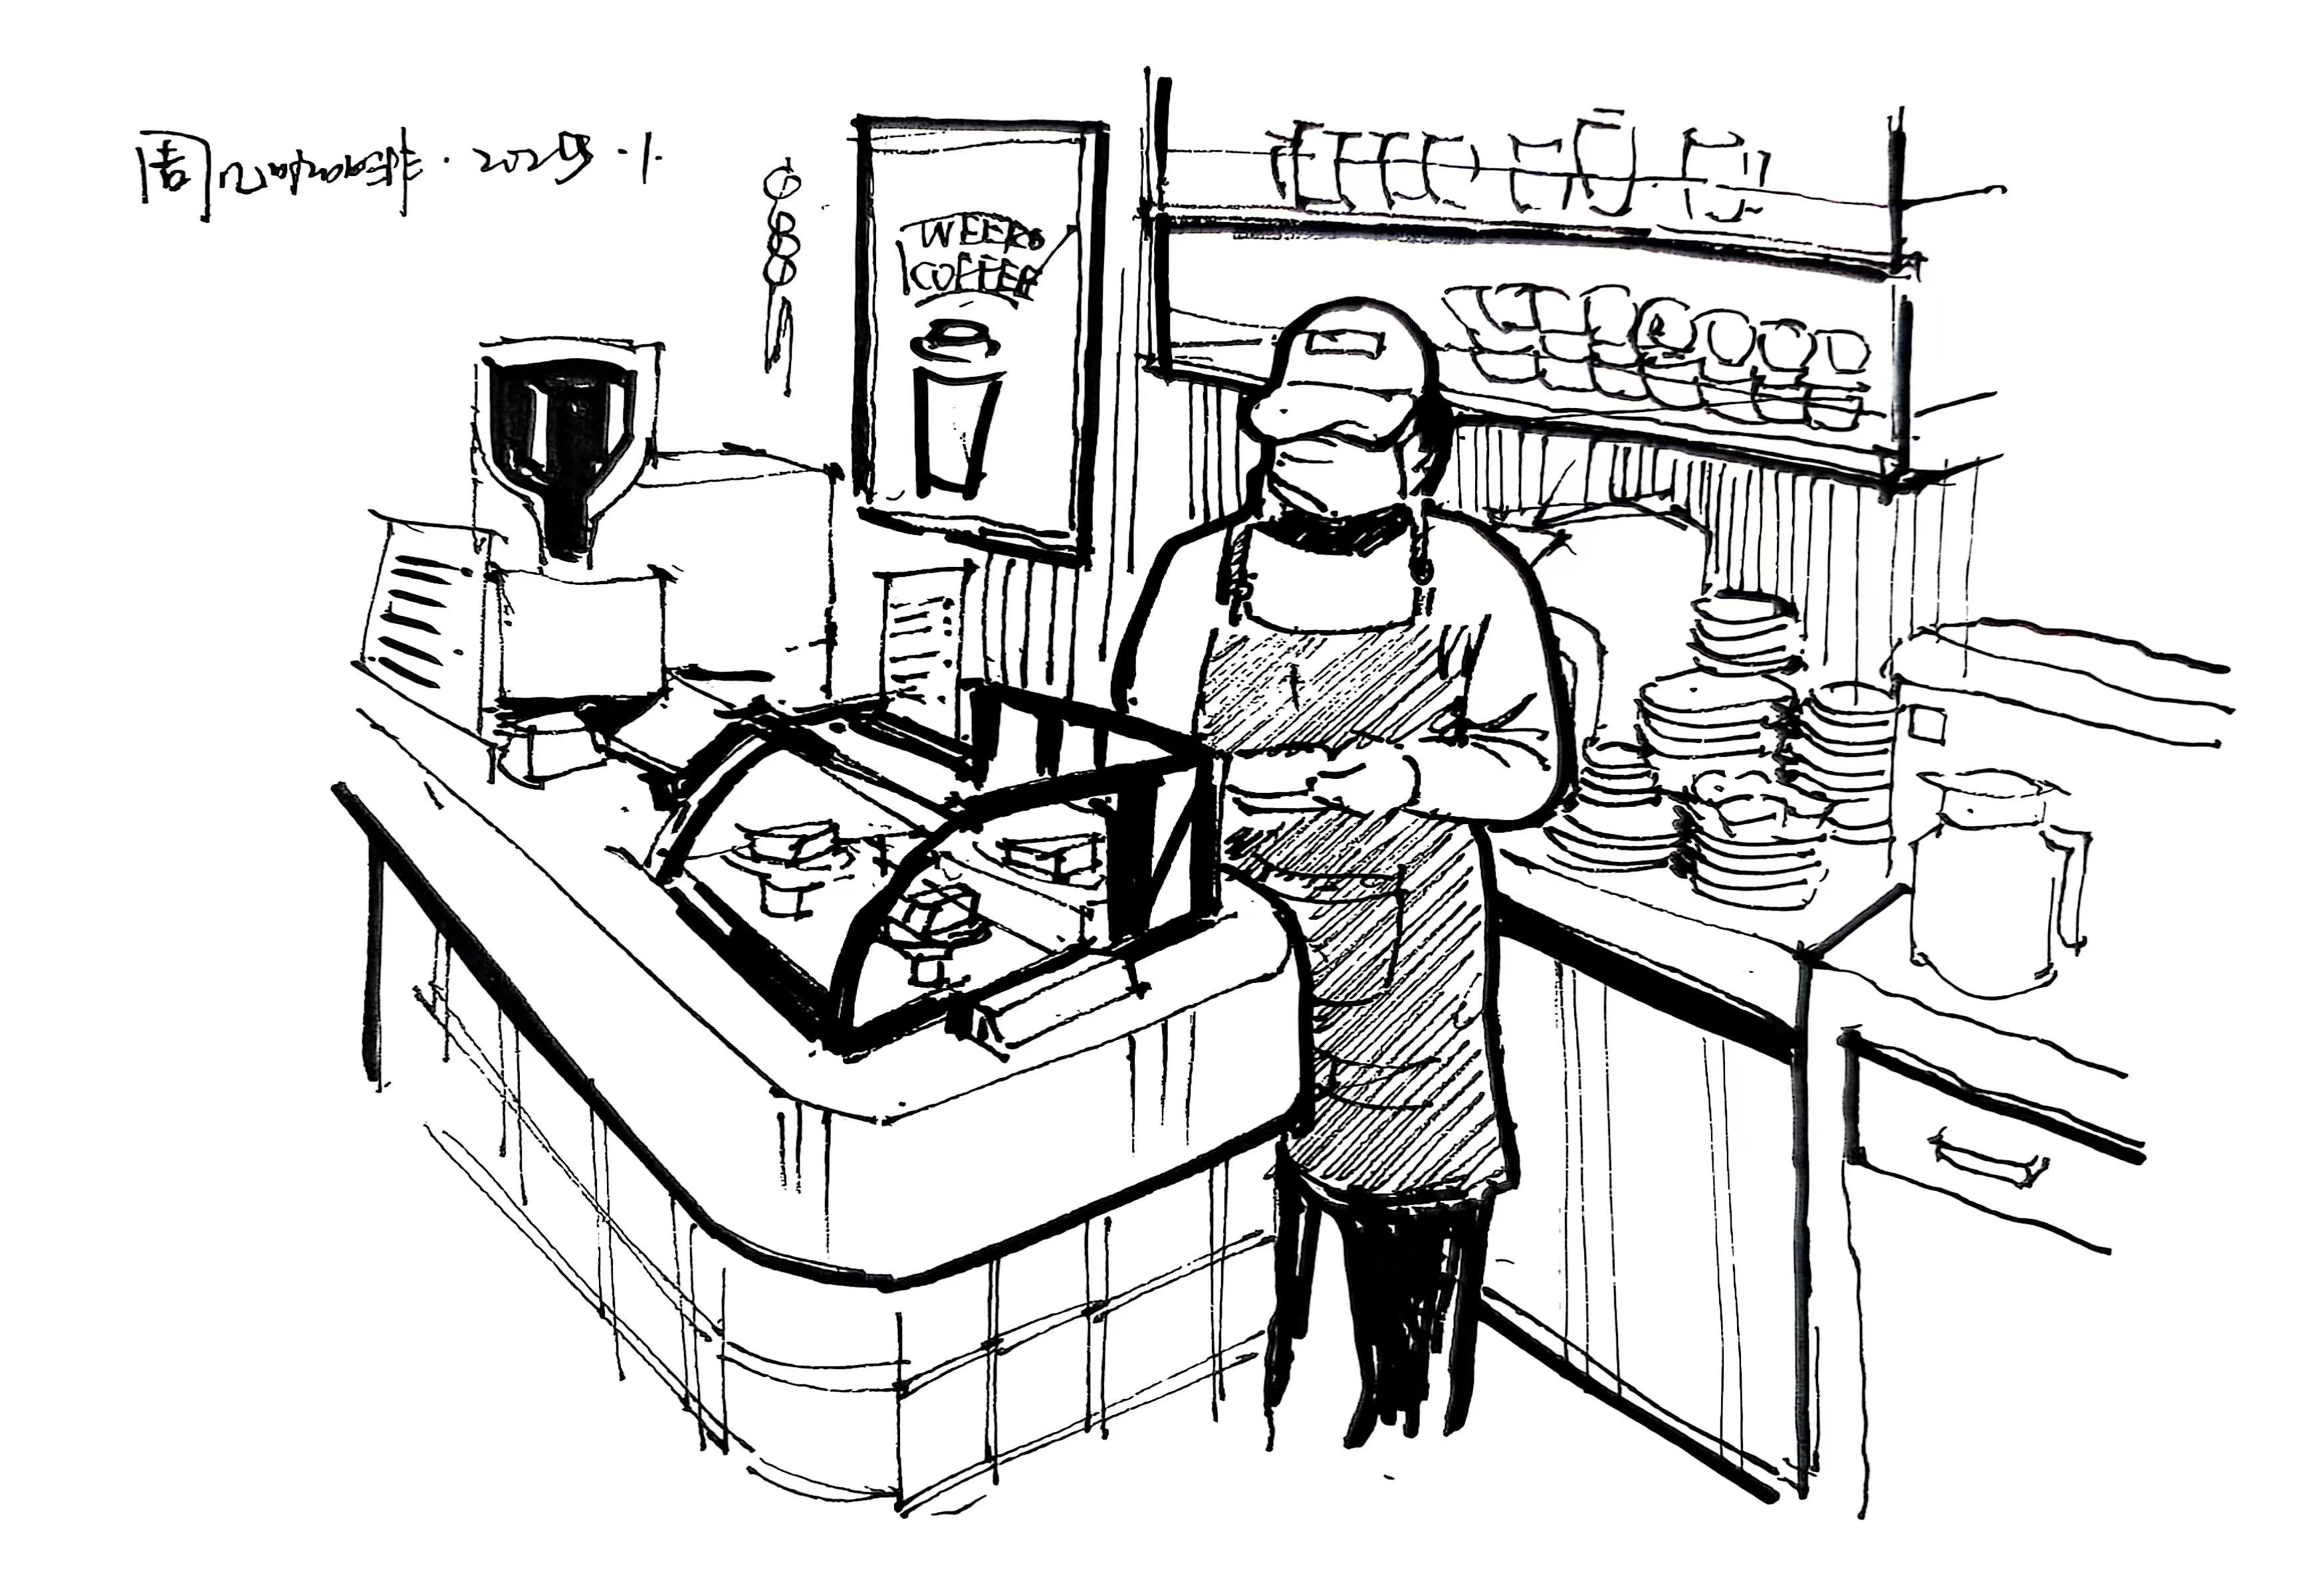 周几咖啡·2025·1.
WEEKS
COFFEE